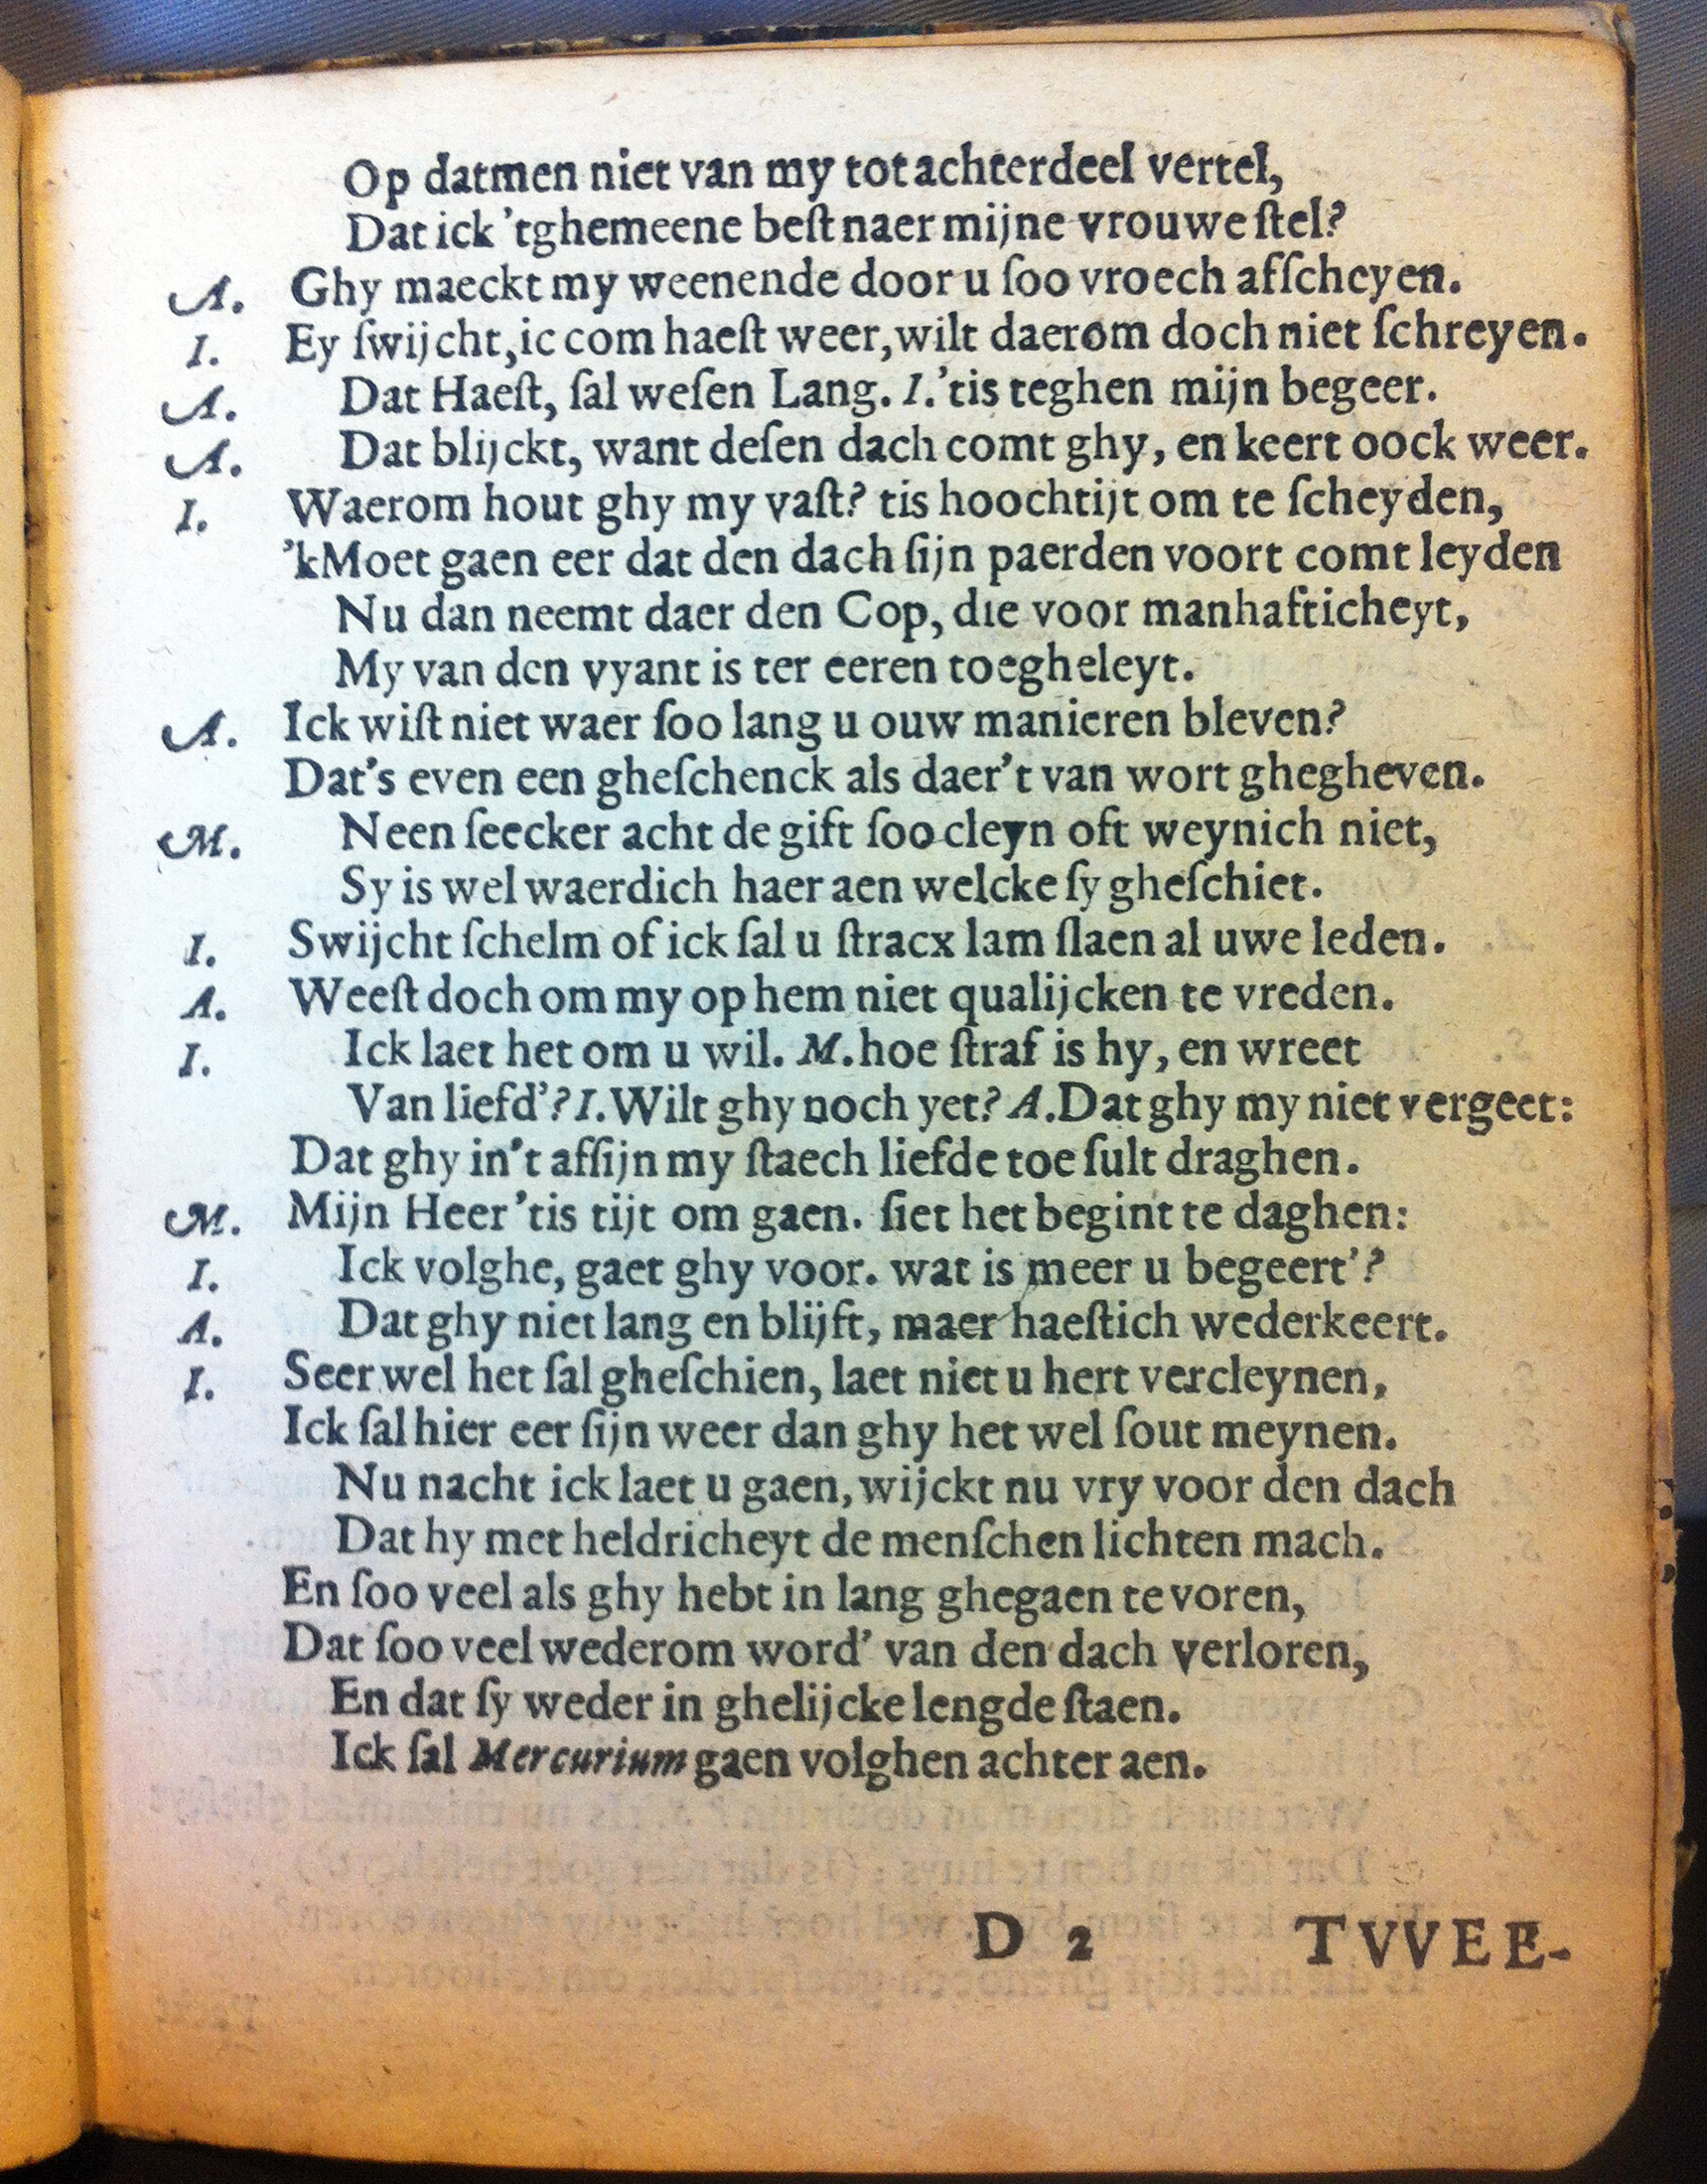 Op datmen niet van my tot achterdeel vertel,
Dat ick 'tghemeene beſt naer mijne vrouwe ſtel?
A. Ghy maeckt my weenende door u ſoo vroech afſcheyen.
I. Ey ſwijcht, ic com haeſt weer, wilt daerom doch niet ſchreyen.
A. Dat Haeſt, ſal weſen Lang. I. 'tis teghen mijn begeer.
A. Dat blijckt, want deſen dach comt ghy, en keert oock weer.
I. Waerom hout ghy my vaſt? tis hoochtijt om te ſcheyden,
'kMoet gaen eer dat den dach ſijn paerden voort comt leyden
Nu dan neemt daer den Cop, die voor manhafticheyt,
My van den vyant is ter eeren toegheleyt.
A. Ick wiſt niet waer ſoo lang u ouw manieren bleven?
Dat's even een gheſchenck als daer't van wort ghegheven.
M. Neen ſeecker acht de gift ſoo cleyn oft weynich niet,
Sy is wel waerdich haer aen welcke ſy gheſchiet.
I. Swijcht ſchelm of ick ſal u ſtracx lam ſlaen al uwe leden.
A. Weeſt doch om my op hem niet qualijcken te vreden.
I. Ick laet het om u wil. M. hoe ſtraf is hy, en wreet
Van liefd'? I. Wilt ghy noch yet? A. Dat ghy my niet vergeet:
Dat ghy in't afſijn my ſtaech liefde toe ſult draghen.
M. Mijn Heer 'tis tijt om gaen. ſiet het begint te daghen:
I. Ick volghe, gaet ghy voor. wat is meer u begeert'?
A. Dat ghy niet lang en blijft, maer haeſtich wederkeert.
I. Seer wel het ſal gheſchien, laet niet u hert vercleynen,
Ick ſal hier eer ſijn weer dan ghy het wel ſout meynen.
Nu nacht ick laet u gaen, wijckt nu vry voor den dach
Dat hy met heldricheyt de menſchen lichten mach.
En ſoo veel als ghy hebt in lang ghegaen te voren,
Dat ſoo veel wederom word' van den dach verloren,
En dat ſy weder in ghelijcke lengde ſtaen.
Ick ſal Mercurium gaen volghen achter aen.
D 2 TVVEE-